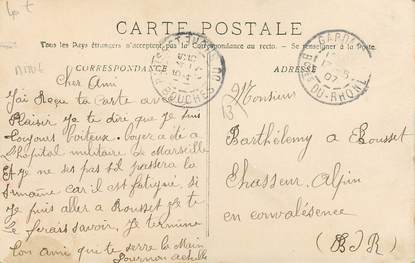 CARTE POSTALE
Tous les Pays étrangers n'acceptent pas la Correspondance au recto. — Se renseigner à la Poste.
CORRESPONDANCE
ADRESSE
BOUCHES DU
GARDANNE
B-DU-RHONE
07
Cher Ami
J'ai Reçu ta carte avec
Plaisir Je te dire que je suis
toujours boiteux. boyer a dé a
L'hôpital militaire de Marseille
Et je ne ses pas s'il passera la
Simaine car il est fatigué si
je puis aller a Rousset Je te
le ferais savoir. Je termine
ton ami que te serre la Main
Monsieur
Barthélemy a Rousset
Chasseur Alpin
en convalésence
(B J R)